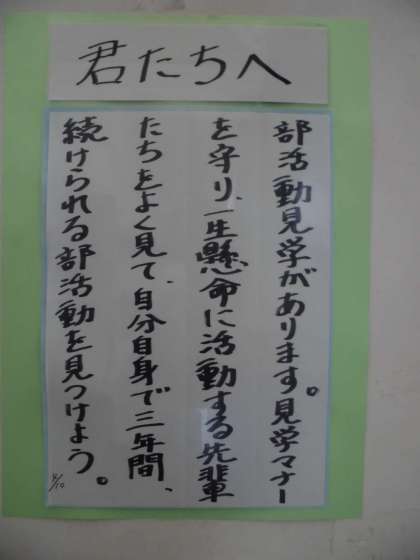 君たちへ
部活動見学があります。見学マナー
を守り、一生懸命に活動する先輩
たちをよく見て、自分自身で三年間、
続けられる部活動を見つけよう。
4/10